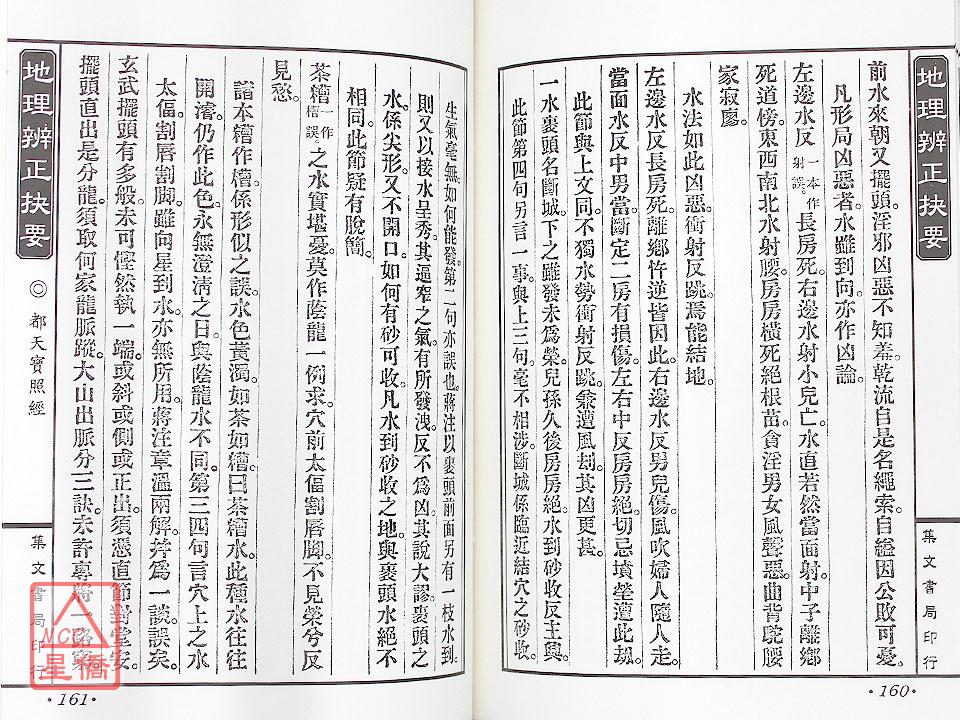 地理辨正抉要
集文書局印行
·160·
前水來朝又擺頭。淫邪凶惡不知羞。乾流自是名繩索。自縊因公敗可憂。
凡形局凶惡者。水雖到向。亦作凶論。
左邊水反一本作射誤。長房死。右邊水射小兒亡。水直若然當面射。中子離鄉
死道傍。東西南北水射腰。房房橫死絕根苗。貪淫男女風聲惡。曲背駝腰
家寂寥。
水法如此凶惡。衝射反跳。焉能結地。
左邊水反長房死。離鄉忤逆皆因此。右邊水反男兒傷。風吹婦人隨人走。
當面水反中男當。斷定二房有損傷。左右中反房房絕。切忌墳塋遭此劫。
此節與上文同。不獨水勢衝射反跳。兼遭風劫。其凶更甚。
一水裹頭名斷城。下之雖發未為榮。兒孫久後房房絕。水到砂收反主興。
此節第四句另言一事。與上三句。毫不相涉。斷城係臨近結穴之砂收。
生氣毫無。如何能發。第二句亦誤也。蔣注以裹頭前面另有一枝水到。
則又以接水呈秀。其逼窄之氣。有所發洩。反不為凶。其說大謬。裹頭之
水。係尖形。又不開口。如何有砂可收。凡水到砂收之地。與裹頭水絕不
相同。此節疑有脫簡。
茶糟一作檜誤。之水實堪憂。莫作蔭龍一例求。穴前太偪割唇脚。不見榮兮反
見愁。
諸本糟作檜。係形似之誤。水色黃濁。如茶如糟。曰茶糟水。此種水往往
開濬。仍作此色。永無澄清之日。與蔭龍水不同。第三四句言穴上之水
太偪。割唇割脚。雖向星到水。亦無所用。蔣注章溫兩解。并為一談。誤矣。
玄武擺頭有多般。未可慳然執一端。或斜或側或正出。須憑直節對堂安。
擺頭直出是分龍。須取何家龍脈蹤。大山出脈分三訣。未許專將一路窮
地理辨正抉要
◎都天寶照經
集文書局印行
·161·
NCC
星僑